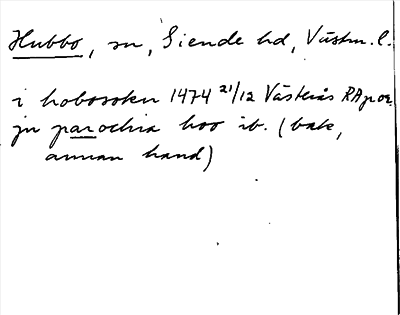 Hubbo, sn, Siende hd, Västm. l.
i hobosokn 1474 21/12 Västerås RAp or.
jn parochia hoo ib. (bak,
annan hand)